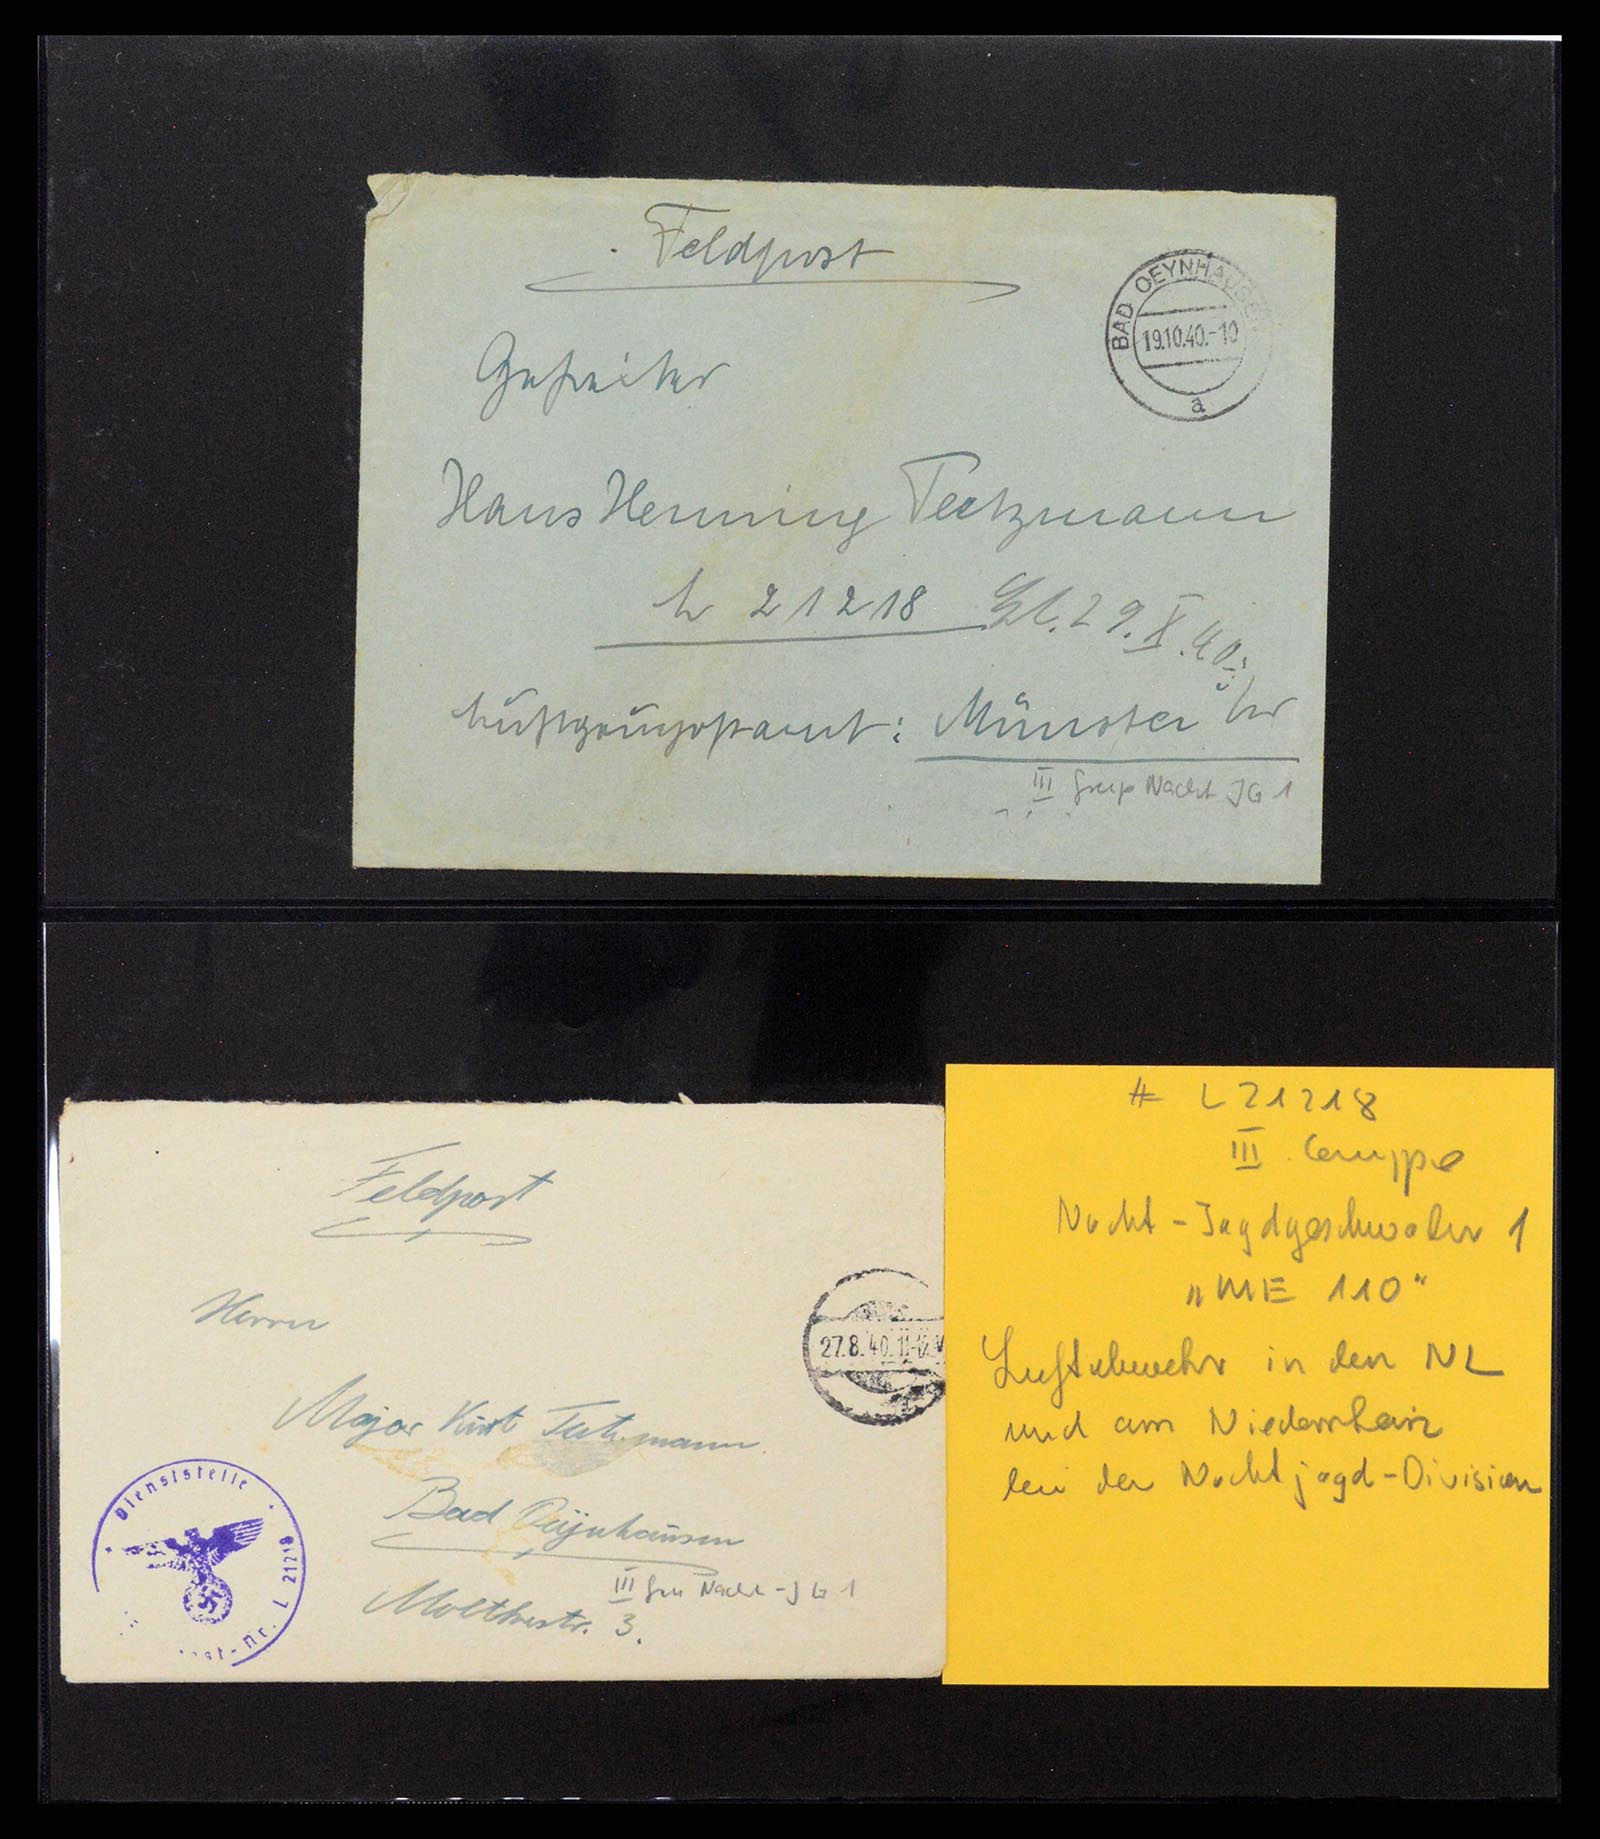 Feldpost
BAD OEYNHAUSE
19.10.40.-10
a
Gefreiter
Hans Henning Teetzmann
L 21218
29.X.40.
Luftgaupostamt: Münster
III Grup Nacht JG 1
Feldpost
Herrn
27.8.40.11-12.V
Major Kurt Teetzmann
Bad Oeynhausen
III Gru Nacht-JG 1
Moltkestr. 3.
Dienststelle
st-Nr. L 21218
# L21218
III. Gruppe
Nacht-Jagdgeschwader 1
„ME 110“
Luftabwehr in den NL
und am Niederrhein
bei der Nachtjagd-Division